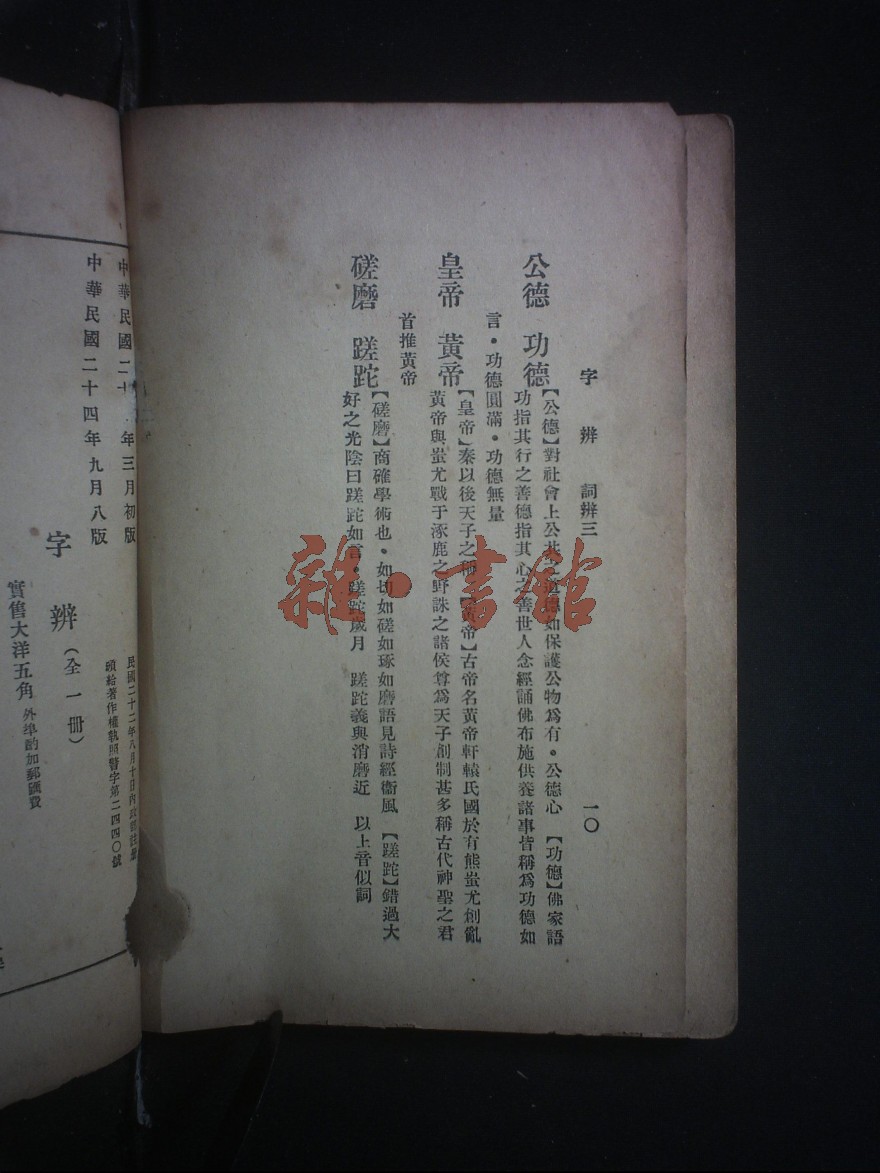 字 辨 詞辨三 一〇
公德 功德【公德】對社會上公共之道德如保護公物爲有・公德心 【功德】佛家語
功指其行之善德指其心之善世人念經誦佛布施供養諸事皆稱爲功德如
言・功德圓滿・功德無量
皇帝 黃帝【皇帝】秦以後天子之稱 【黃帝】古帝名黃帝軒轅氏國於有熊蚩尤創亂
黃帝與蚩尤戰于涿鹿之野誅之諸侯尊爲天子創制甚多稱古代神聖之君
首推黃帝
磋磨 蹉跎【磋磨】商確學術也・如切如磋如琢如磨語見詩經衞風 【蹉跎】錯過大
好之光陰曰蹉跎如言・蹉跎歲月 蹉跎義與消磨近 以上音似詞
民國二十二年八月十日內政部註册
頒給著作權執照警字第二四四〇號
中華民國二十 年三月初版
中華民國二十四年九月八版
字 辨（全 一 冊）
實售大洋五角 外埠酌加郵匯費
雜・書館